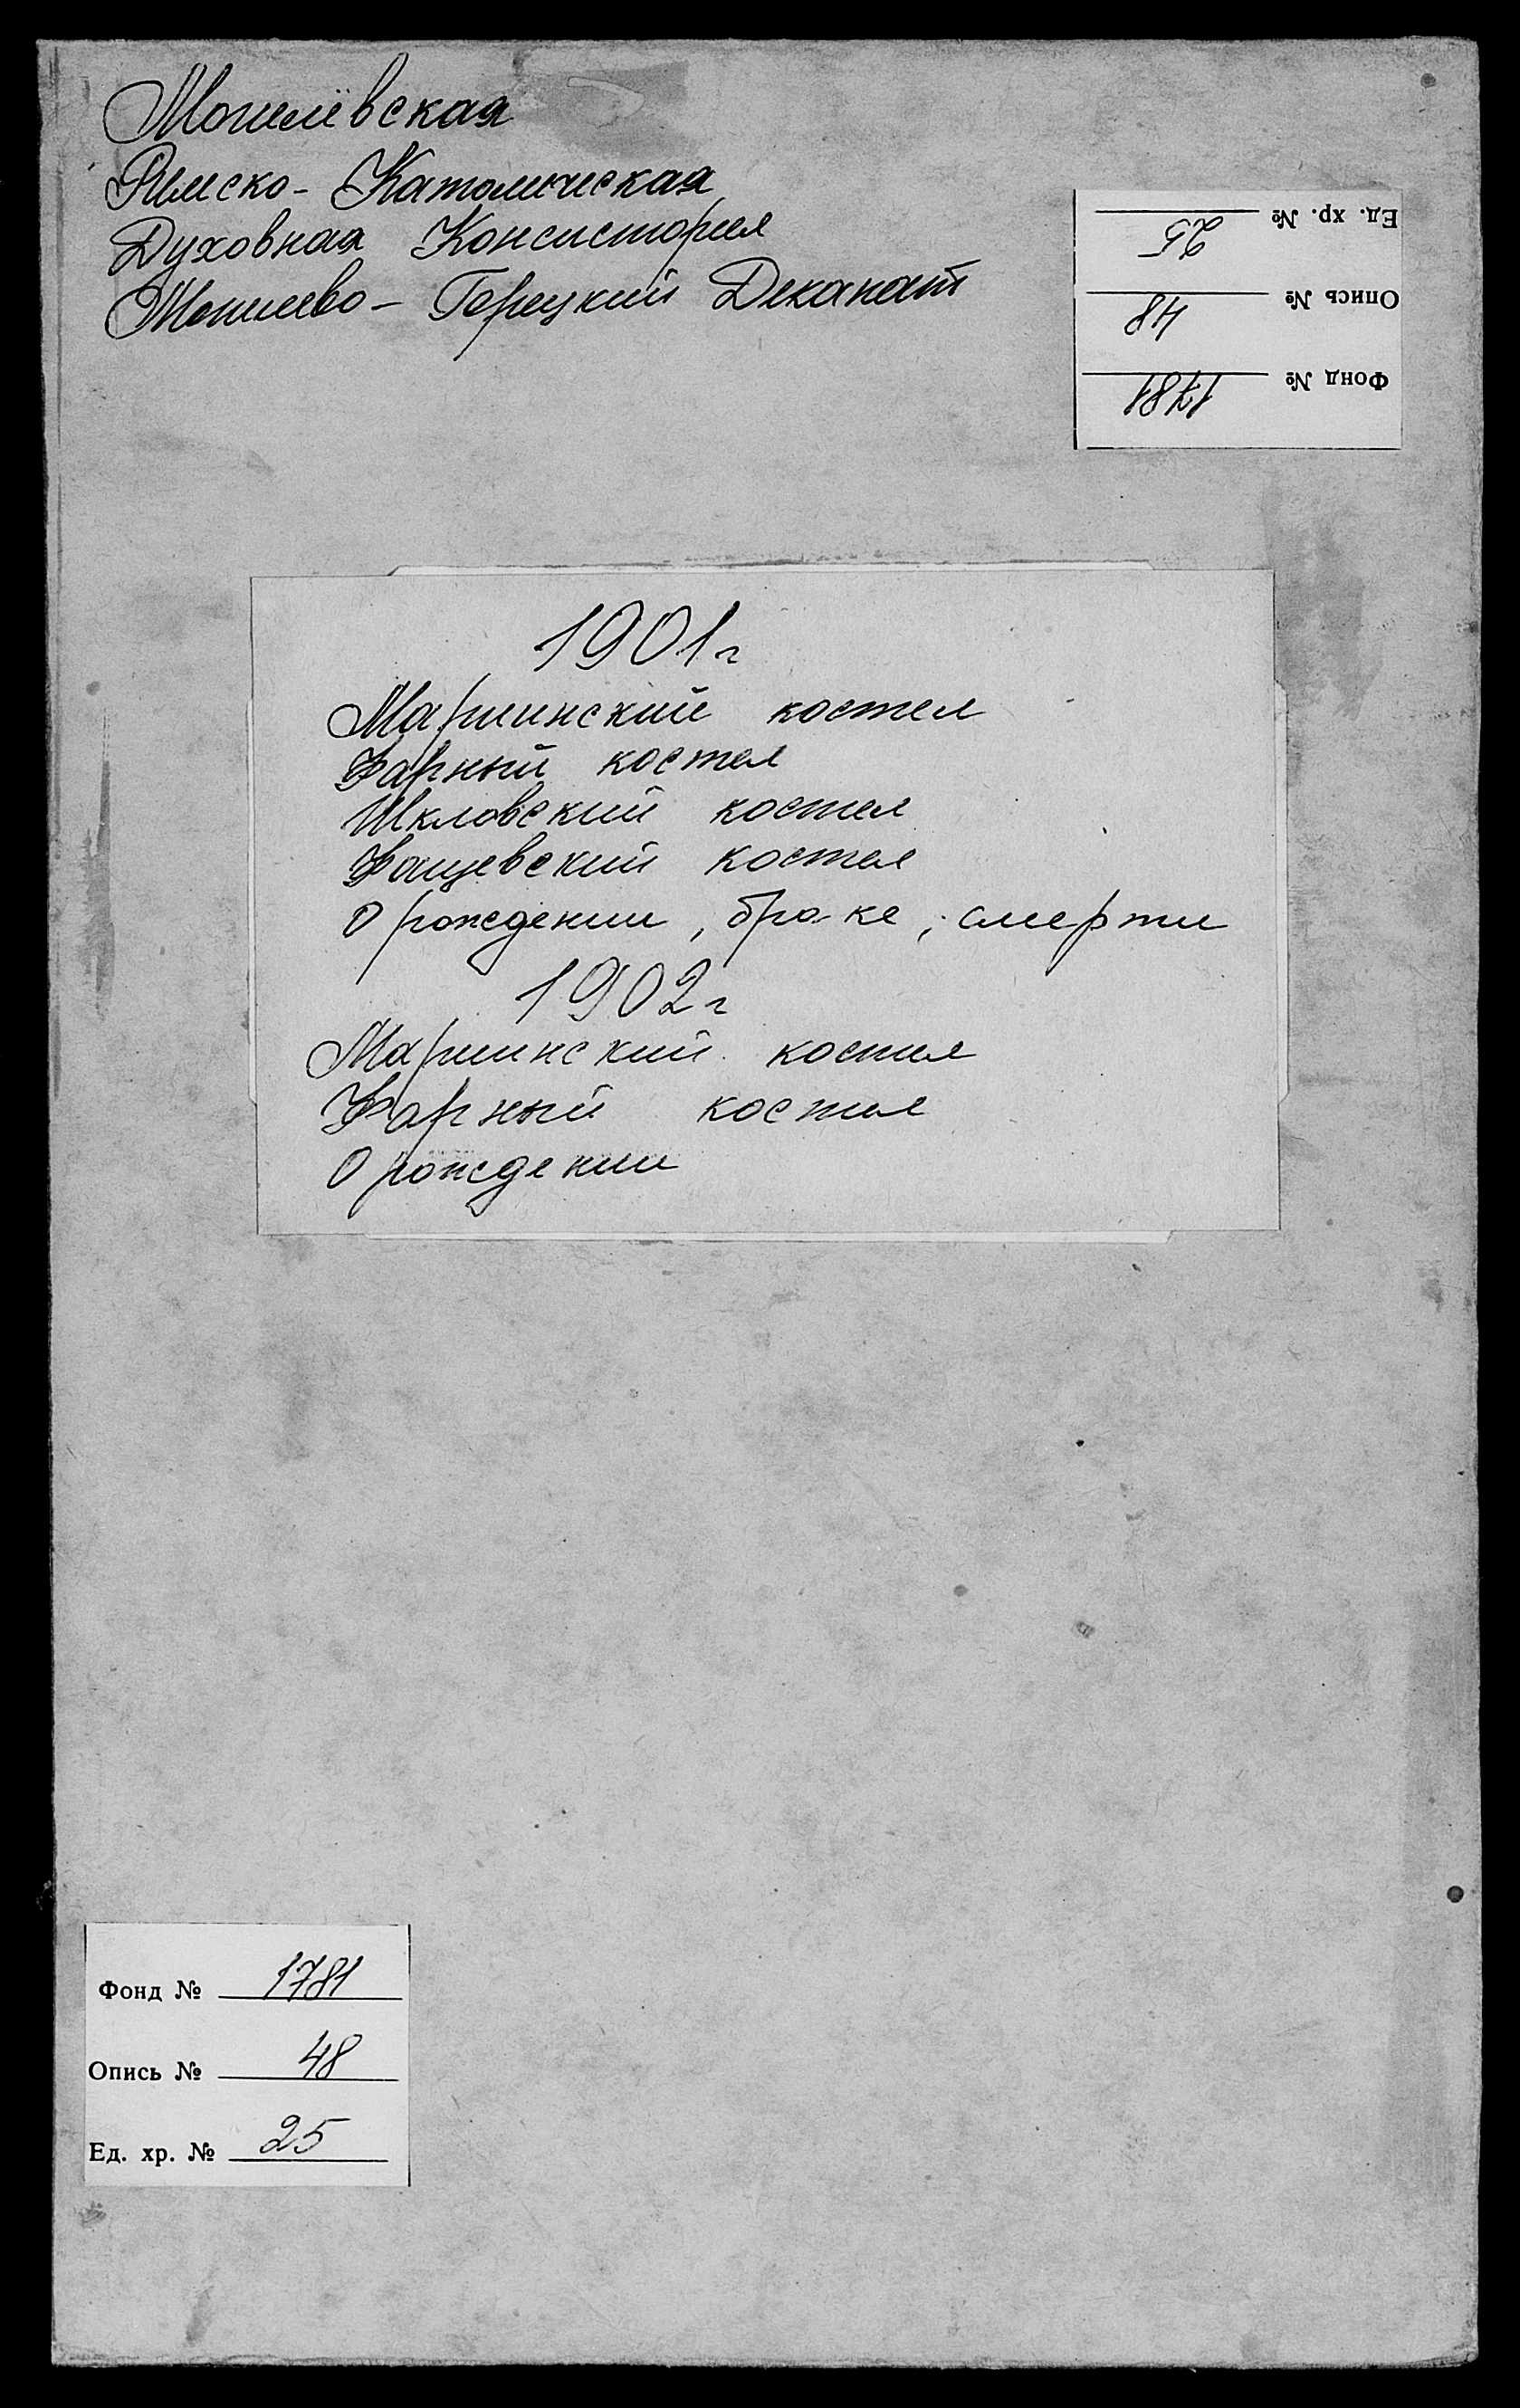 Могилёвская
Римско-Католическая
Духовная Консистория
Могилево-Горецкий Деканат
Ед. хр. № 25
Опись № 48
Фонд № 1781
1901г
Мариинский костел
Фарный костел
Шкловский костел
Фащевский костел
О рождении, браке, смерти
1902г
Мариинский костел
Фарный костел
О рождении
Фонд № 1781
Опись № 48
Ед. хр. № 25